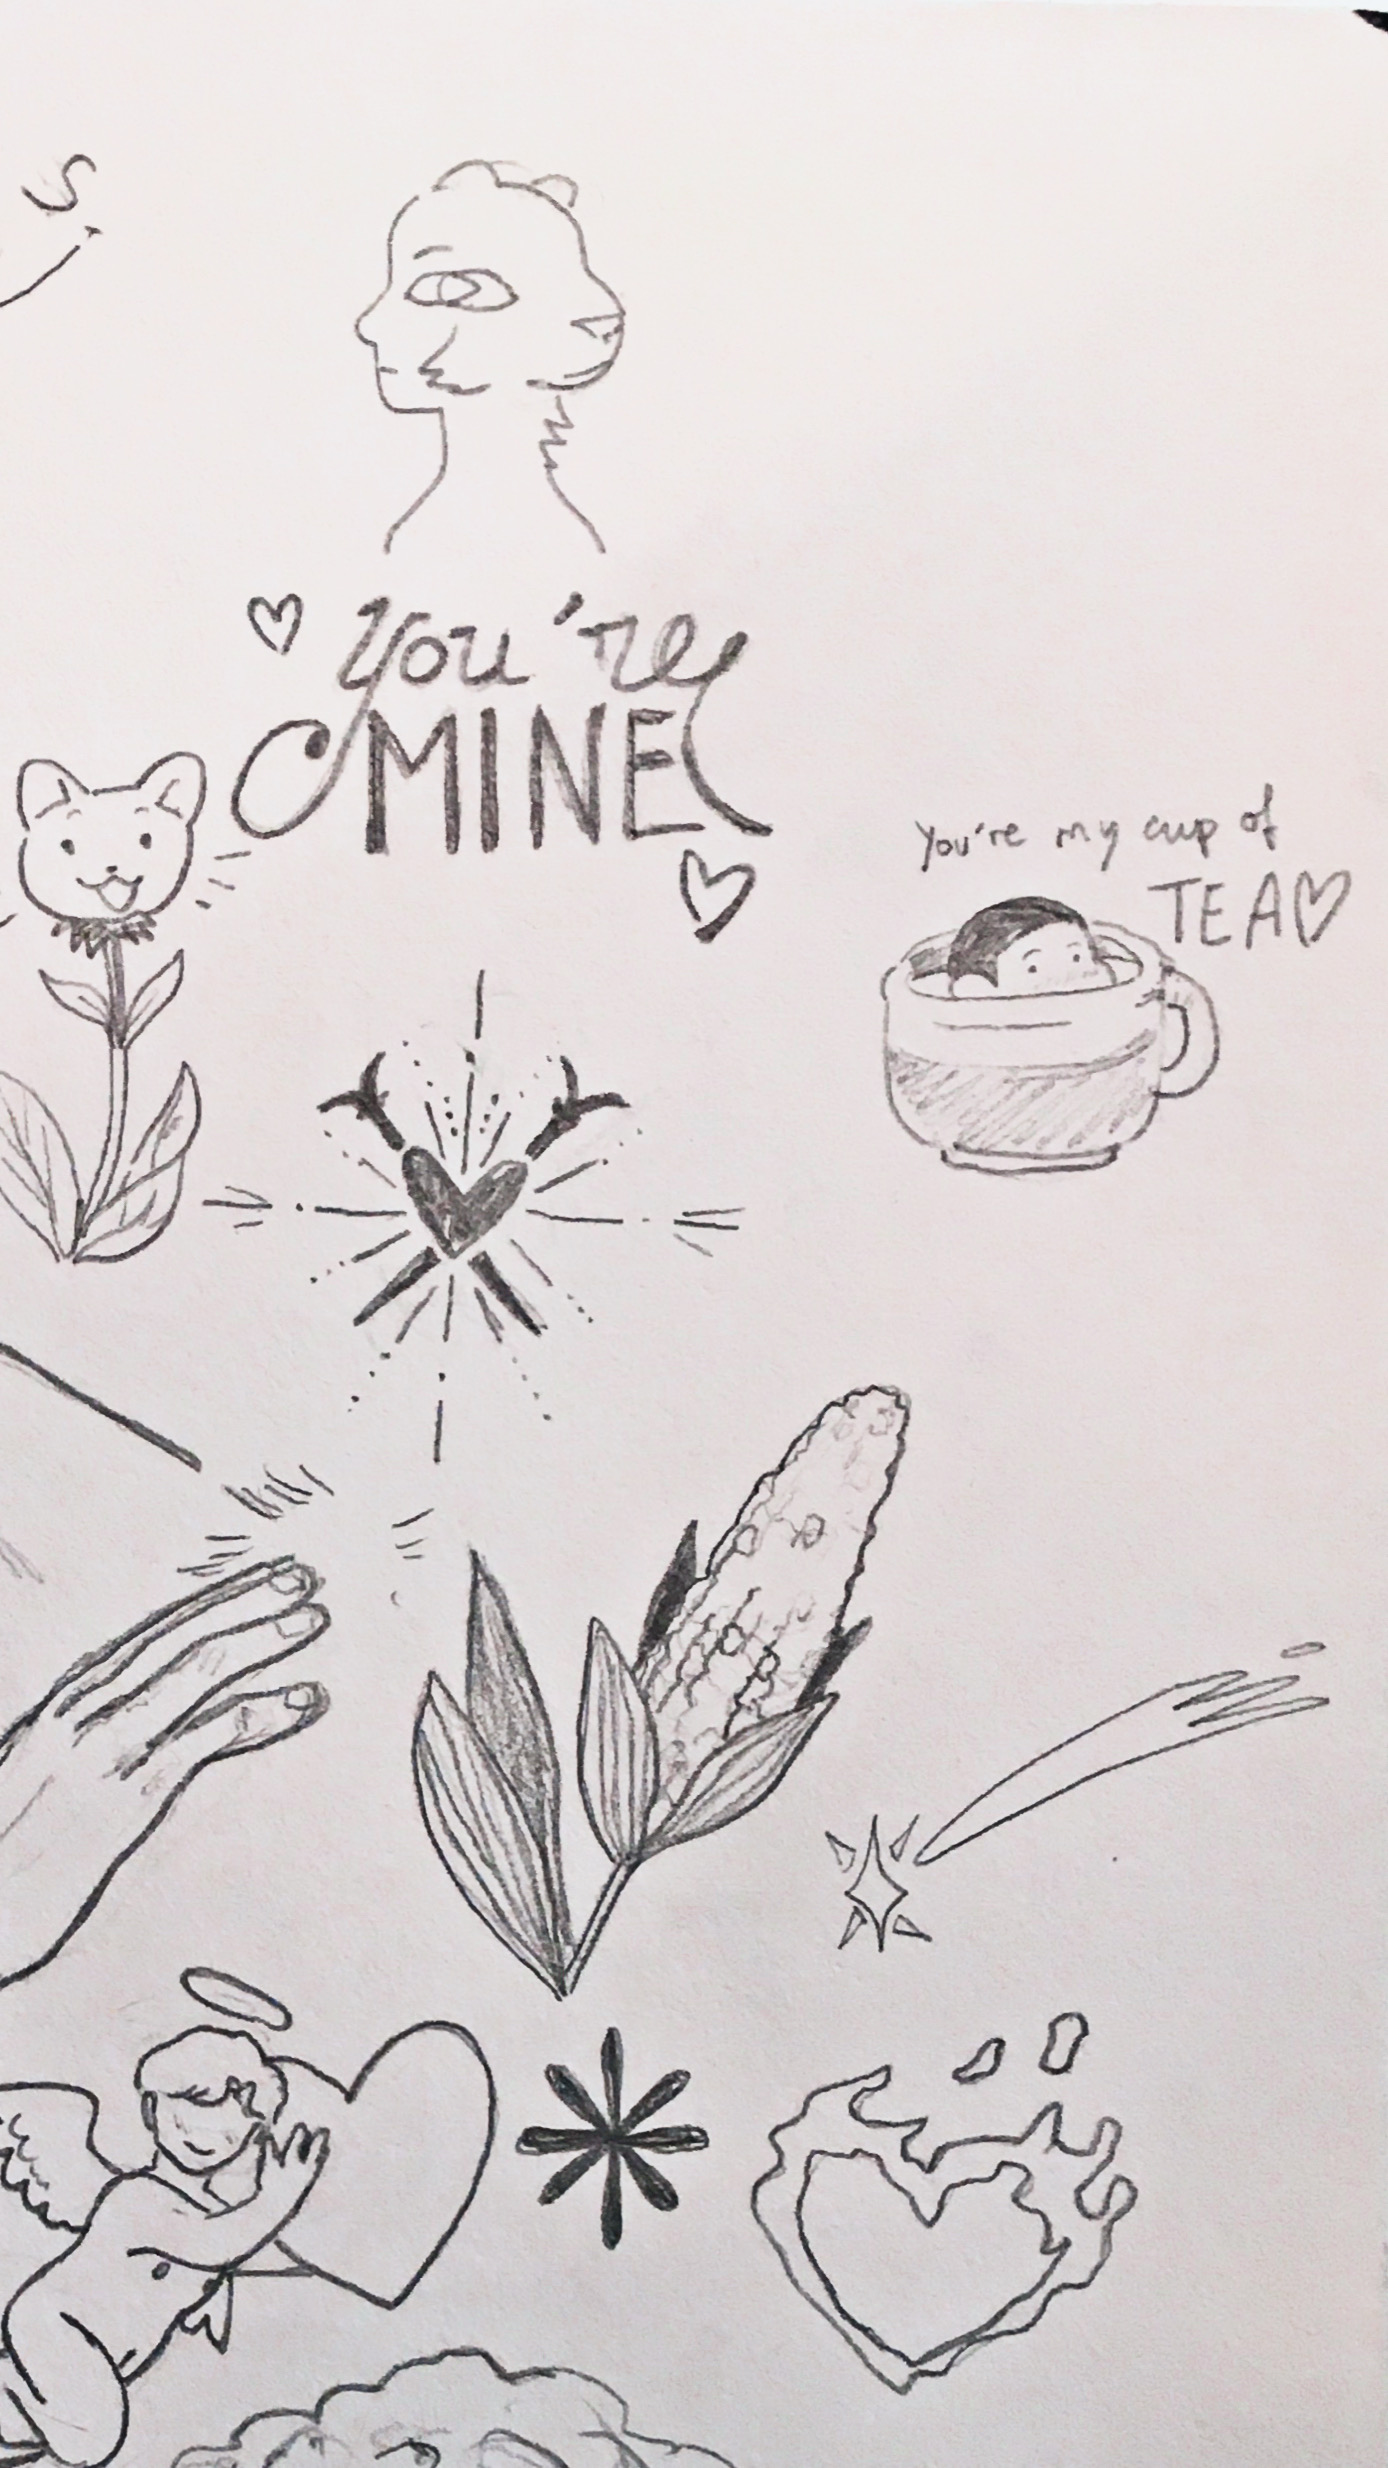 S.
You're
MINE
You're my cup of
TEA♡